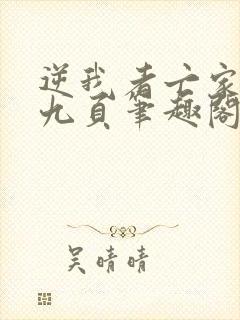 逆我者亡家
九頁筆趣閣
吴晴晴